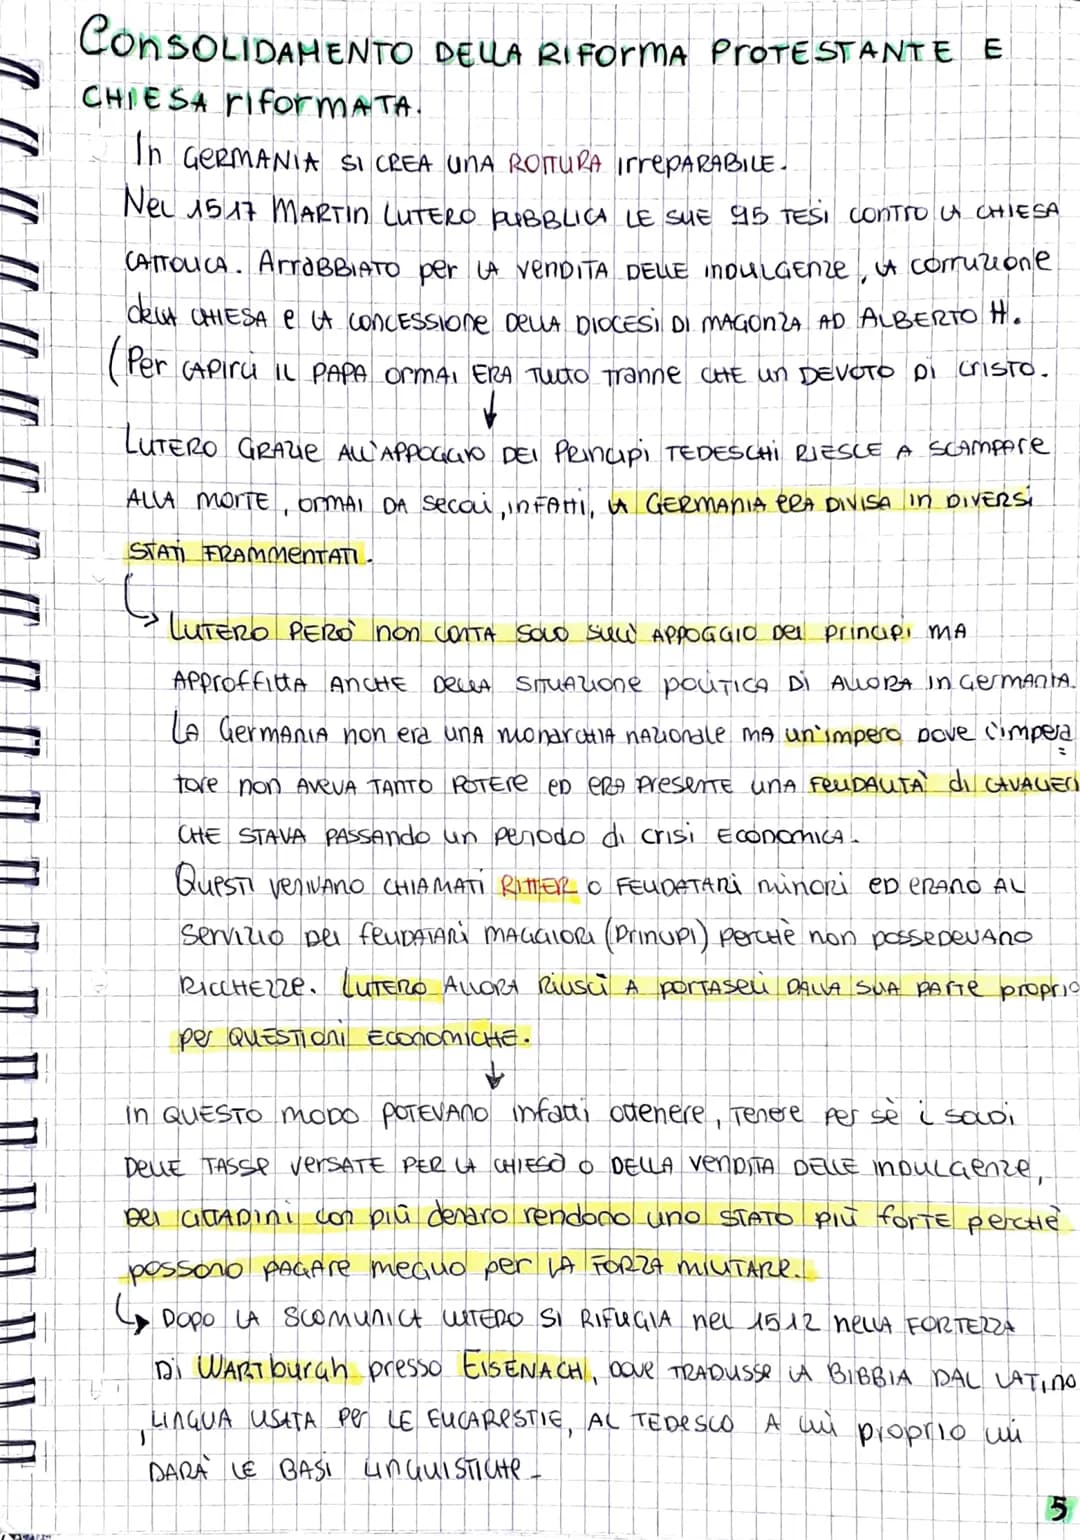 CONSOLIDAMENTO DELLA RIFORMA PROTESTANTE E
CHIESA riformATA.
In GERMANIA SI CREA UNA ROTTURA IrrePARABILE.
Nel 1517 MARTIN LUTERO PUBBLICA LE SUE 95 TESI CONTRO LA CHIESA
CATTOLICA. ArraBBIATO per LA venDITA DELLE inDULGenze, LA corruzione
della CHIESA e LA CONCESSIONe DELLA DIOCESI DI MAGONZA AD ALBERTO H.
(Per CAPIrci IL PAPA ormAI ERA TUTTO Tranne CHE un DEVOTO Di CrISTO.
↓
LUTERO GRAZIE ALL'APPOGGIO DEI Principi TEDESCHI RIESCE A SCAMPAre
ALLA MORTE, ormAI DA secoli, inFAtti, LA GERMANIA ERA DIVISA in DIVERSI
STATI FRAMMENTATI.
↳ LUTERO PERÒ non CONTA SOLO SULL' APPOGGIO DEI principi MA
Approffitta ANCHE DELLA SITUAZIONe POLITICA Di ALLORA in GermANIA.
LA GermANIA non era unA monarCHIA nAZIONale MA un'impero Dove l'impera
tore non AVEVA TANTO POTERe ED ERA PresenTE unA FEUDALITÀ di CAVALIERI
CHE STAVA PASSANDO un periodo di crisi ECONOMICA.
QuesTI venIVANO CHIAMATI RITTER O FEUDATARI minori ED ERANO AL
servizio DEI feuDATARI MAGGIORI (Principi) PerCHÈ non possEDEVANO
RICCHEZZe. LUTERO ALLORA RIUSCÌ A portASELi DALLA SUA PARTE proprio
per QUESTIONI ECONOMICHE.
↓
In QUESTO MODO POTEVANO infatti ottenere, Tenere Per sè i soldi
DELLE TASSE VERSATE PER LA CHIESA O DELLA VENDITA DELLE inDULGenze,
DEI CITTADINI con più denaro rendono uno STATO più forTE perchè
possono PAGAre meglio per LA FORZA MILITARE.
↳ DOPO LA SCOMUNICA LUTERO SI RIFUGIA nel 1512 nELLA FORTEZZA
Di WARTburgh presso EISENACH, DOVE TRADUSSE LA BIBBIA DAL LATIno
, LINGUA USATA Per LE EUCARESTIE, AL TEDESCO A cui proprio lui
DARÀ LE BASI LINGUISTICHE.
5